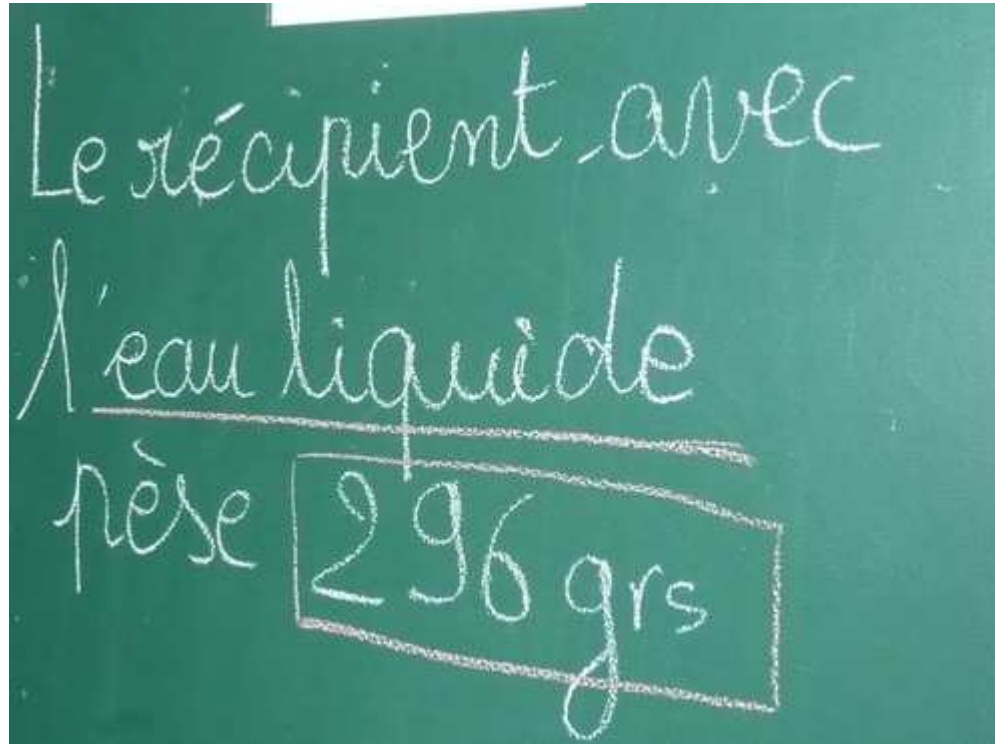 Le récipient avec
l'eau liquide
pèse 296 grs